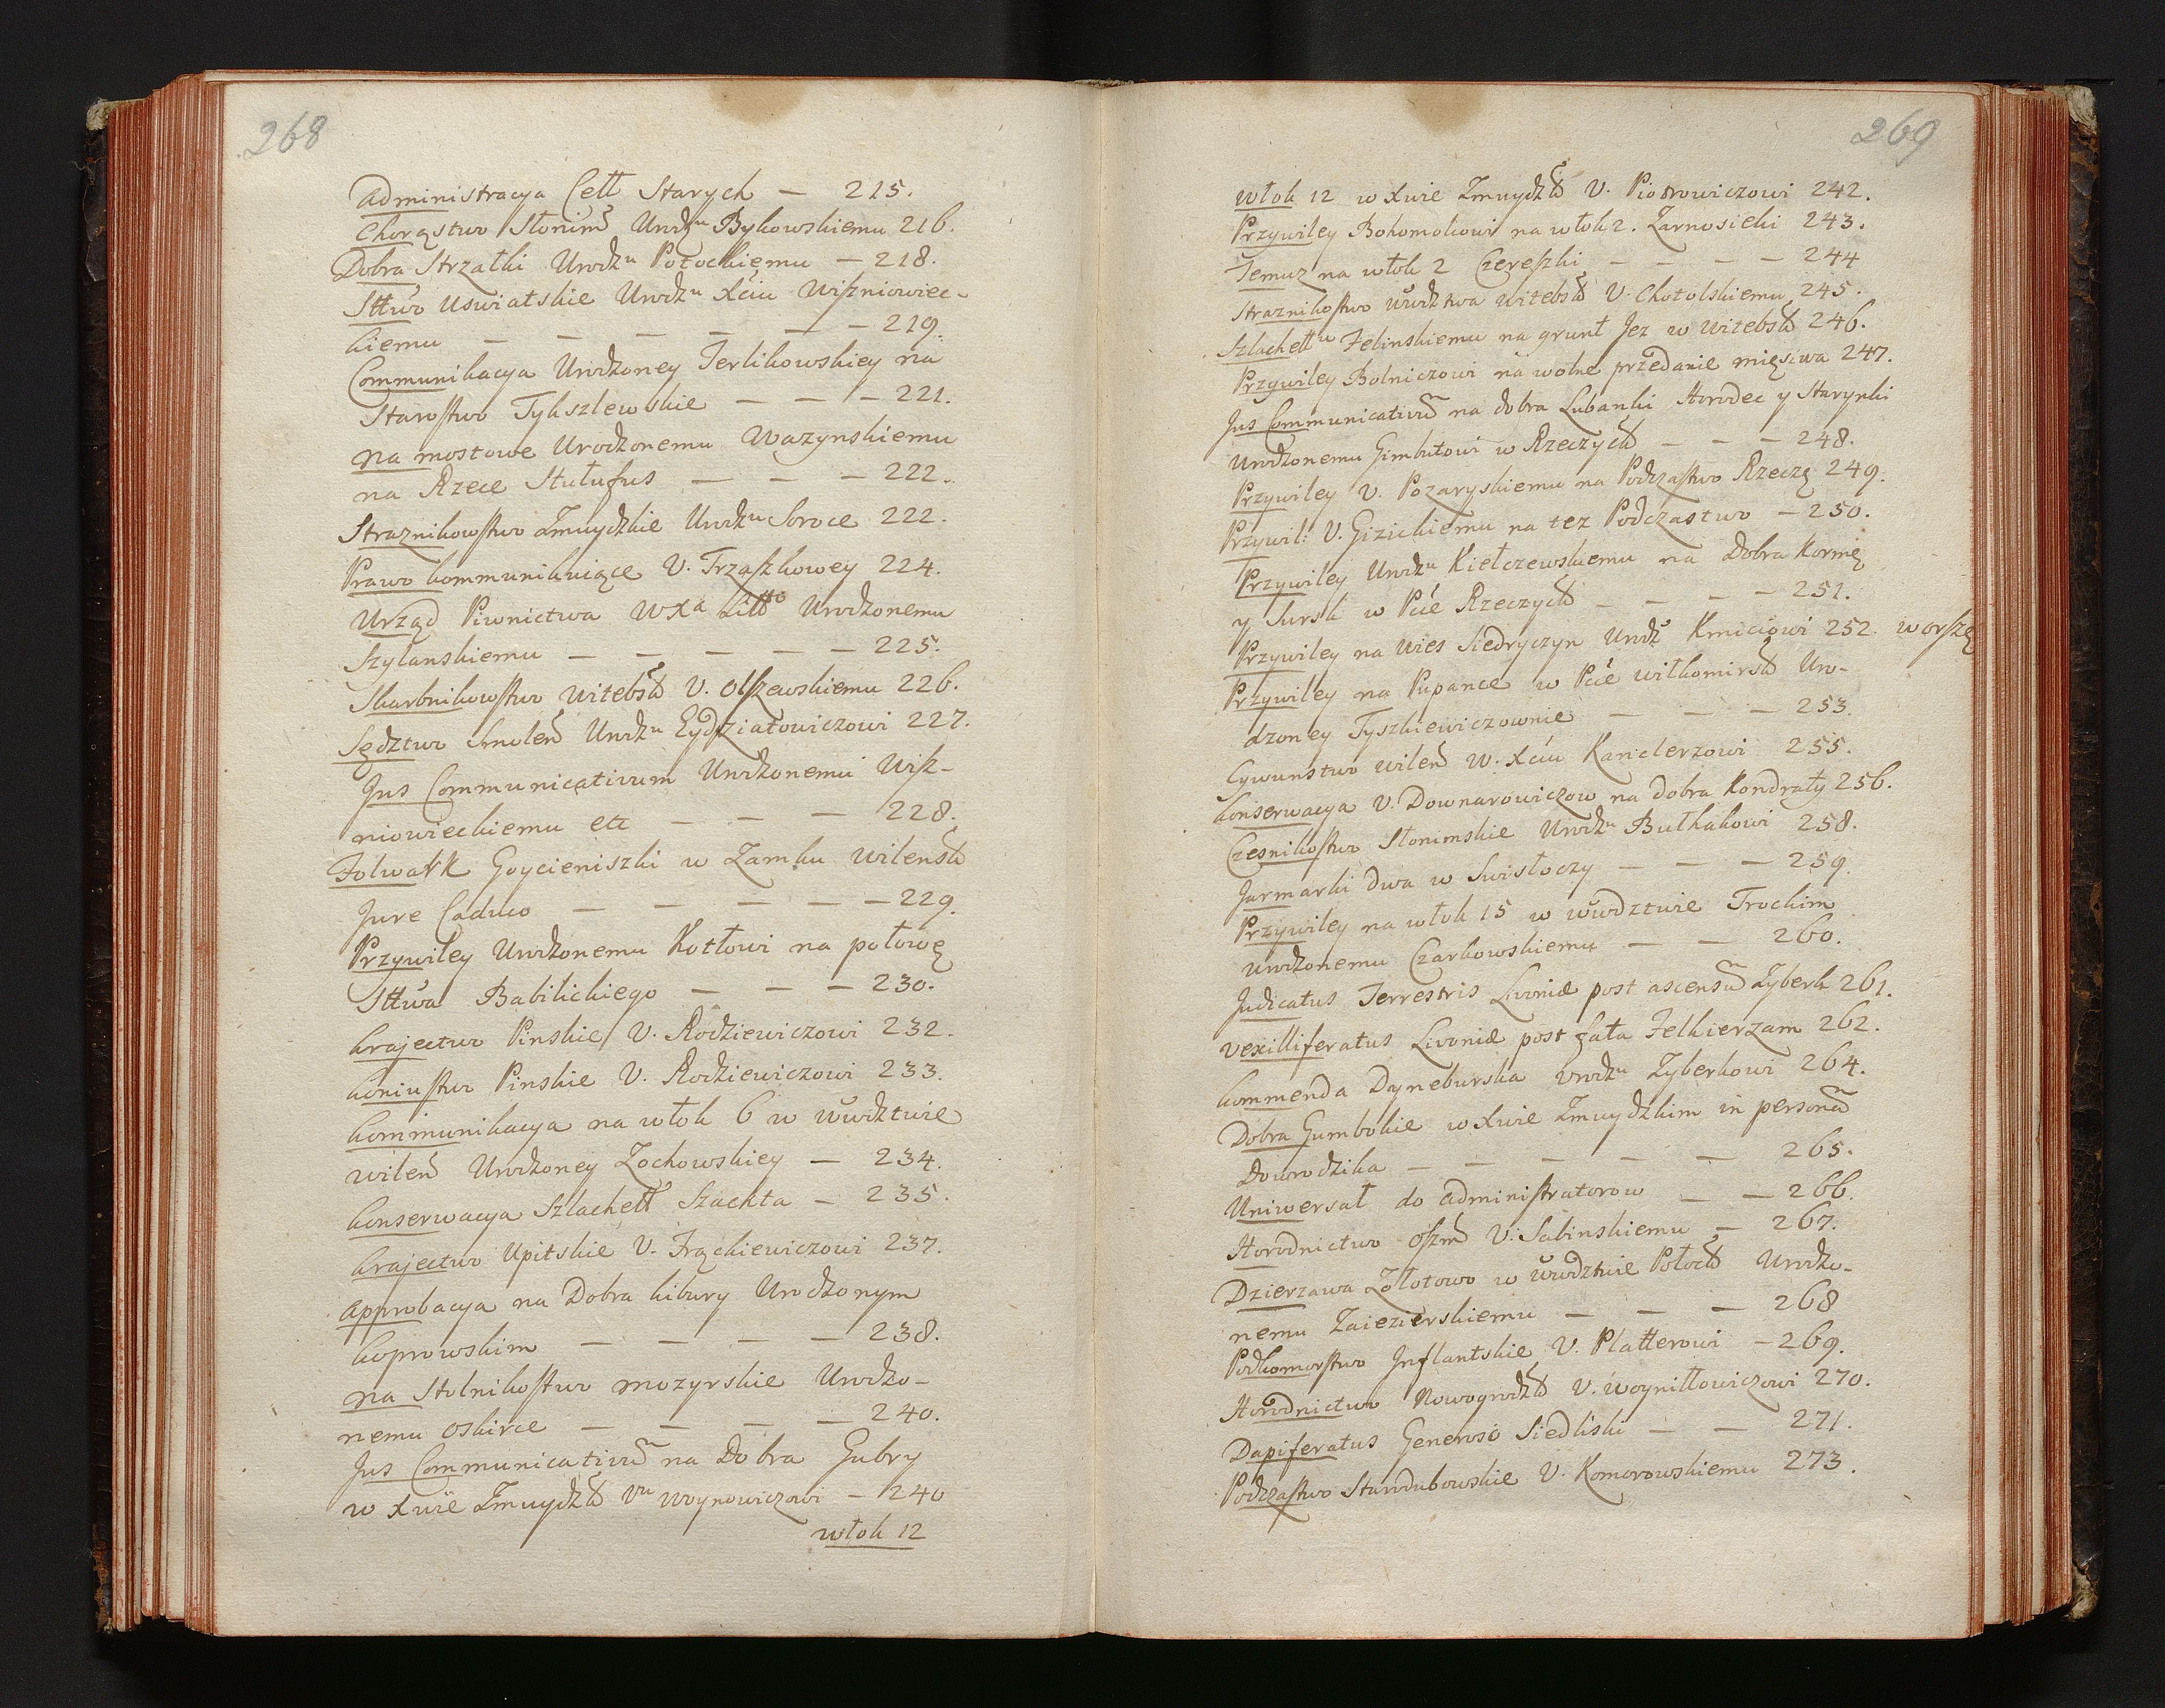 268
Administracya Cell Starych — 215.
Chorąstwo Słonim Urodzu Bykowskiemu 216.
Dobra Strzałki Urodzu Potockiemu — 218.
Sttwo Uswiatskie Urodzu Xciu Wiszniowiec-
kiemu — — — — — — 219.
Communikacya Urodzoney Terlikowskiey na
Starostwo Tykszlewskie — — — 221.
Na mostowe Urodzonemu Wazynskiemu
na Rzece Stutufus — — — 222.
Straznikowstwo Zmuydzkie Urodzu Soroce 222.
Prawo kommunikuiące U. Trzaszkowey 224.
Urząd Piwnictwa WXa Litto Urodzonemu
Szylanskiemu — — — — — 225.
Skarbnikowstwo Witebsk U. Olszewskiemu 226.
Sędztwo Smolen Urodzu Eydziatowiczowi 227.
Jus Communicativum Urodzonemu Wisz-
niowieckiemu etc — — — 228.
Folwark Goycieniszki w Zamku Wilensk
Jure Caduco — — — — — 229.
Przywiley Urodzonemu Kotłowi na połowę
Sttwa Babilickiego — — — 230.
Krajectwo Pinskie U. Rodziewiczowi 232.
Koniustwo Pinskie U. Rodziewiczowi 233.
Kommunikacya na włok 6 w Wwdztwie
Wilen Urodzoney Zochowskiey — 234.
Konserwacya Szlachett Szackta — 235.
Krajectwo Upitskie U. Frąckiewiczowi 237.
Approbacya na Dobra Kibury Urodzonym
Koprowskim — — — — 238.
Na Stolnikostwo mozyrskie Urodzo-
nemu Oskirce — — — — 240.
Jus Communicativum na Dobra Gubry
w Xwie Zmuydzk Uu Woynowiczowi — 240
włok 12
269
Włok 12 w Xwie Zmuydzk U. Piotrowiczowi 242.
Przywiley Bohomolcowi na włok 2. Zarnosieki 243.
Temuz na włok 2 Czereszki — — — — 244
Straznikostwo Wwdztwa Witebsk U. Chotolskiemu 245.
Szlachettu Zelinskiemu na grunt Jez w Witebsk 246.
Przywiley Bolniczowi na wolne przedanie mięsiwa 247.
Jus Communicativum na dobra Lubanki Horodec y Starynki
Urodzonemu Gimbutowi w Rzeczyck — — — 248.
Przywiley U. Pozaryskiemu na Podczastwo Rzeczę 249.
Przywil: U. Gizickiemu na tez Podczastwo — 250.
Przywiley Urodzu Kiełczewskiemu na Dobra Kormę
y Sursk w Pcie Rzeczyck — — — — 251.
Przywiley na Wies Siedryczyn Urodz Kmiciowi 252. w orszę
Przywiley na Pupance w Pcie wiłkomirsk Uro-
dzoney Tyszkiewiczownie — — — 253.
Cywunstwo wilen W. Xciu Kanclerzowi 255.
Konserwacya U. Downarowiczow na dobra Kondraty 256.
Czesnikostwo Słonimskie Urodzu Bułhakowi 258.
Jarmarki dwa w Swisłoczy — — — 259.
Przywiley na włok 15 w Wwdztwie Trockim
Urodzonemu Czarkowskiemu — — 260.
Judicatus Terrestris Livoniæ post ascensum Zyberk 261.
Vexilliferatus Livoniæ post fata Felkierzam 262.
Kommenda Dyneburska Urodzu Zyberkowi 264.
Dobra Gumbokie w Xwie Zmuydzkim in personam
Dowodzika — — — — — 265.
Uniwersał do Administratorow — — 266.
Horodnictwo Oszm U. Sabinskiemu — 267.
Dzierzawa Zołotowo w Wwdztwie Połock Urodzo-
nemu Zaiezierskiemu — — — 268
Podkomorstwo Inflantskie U. Platterowi — 269.
Horodnictwo Nowogrodzk U. Woyniłłowiczowi 270.
Dapiferatus Generoso Siedliski — — 271.
Podczastwo Starodubowskie U. Komorowskiemu 273.